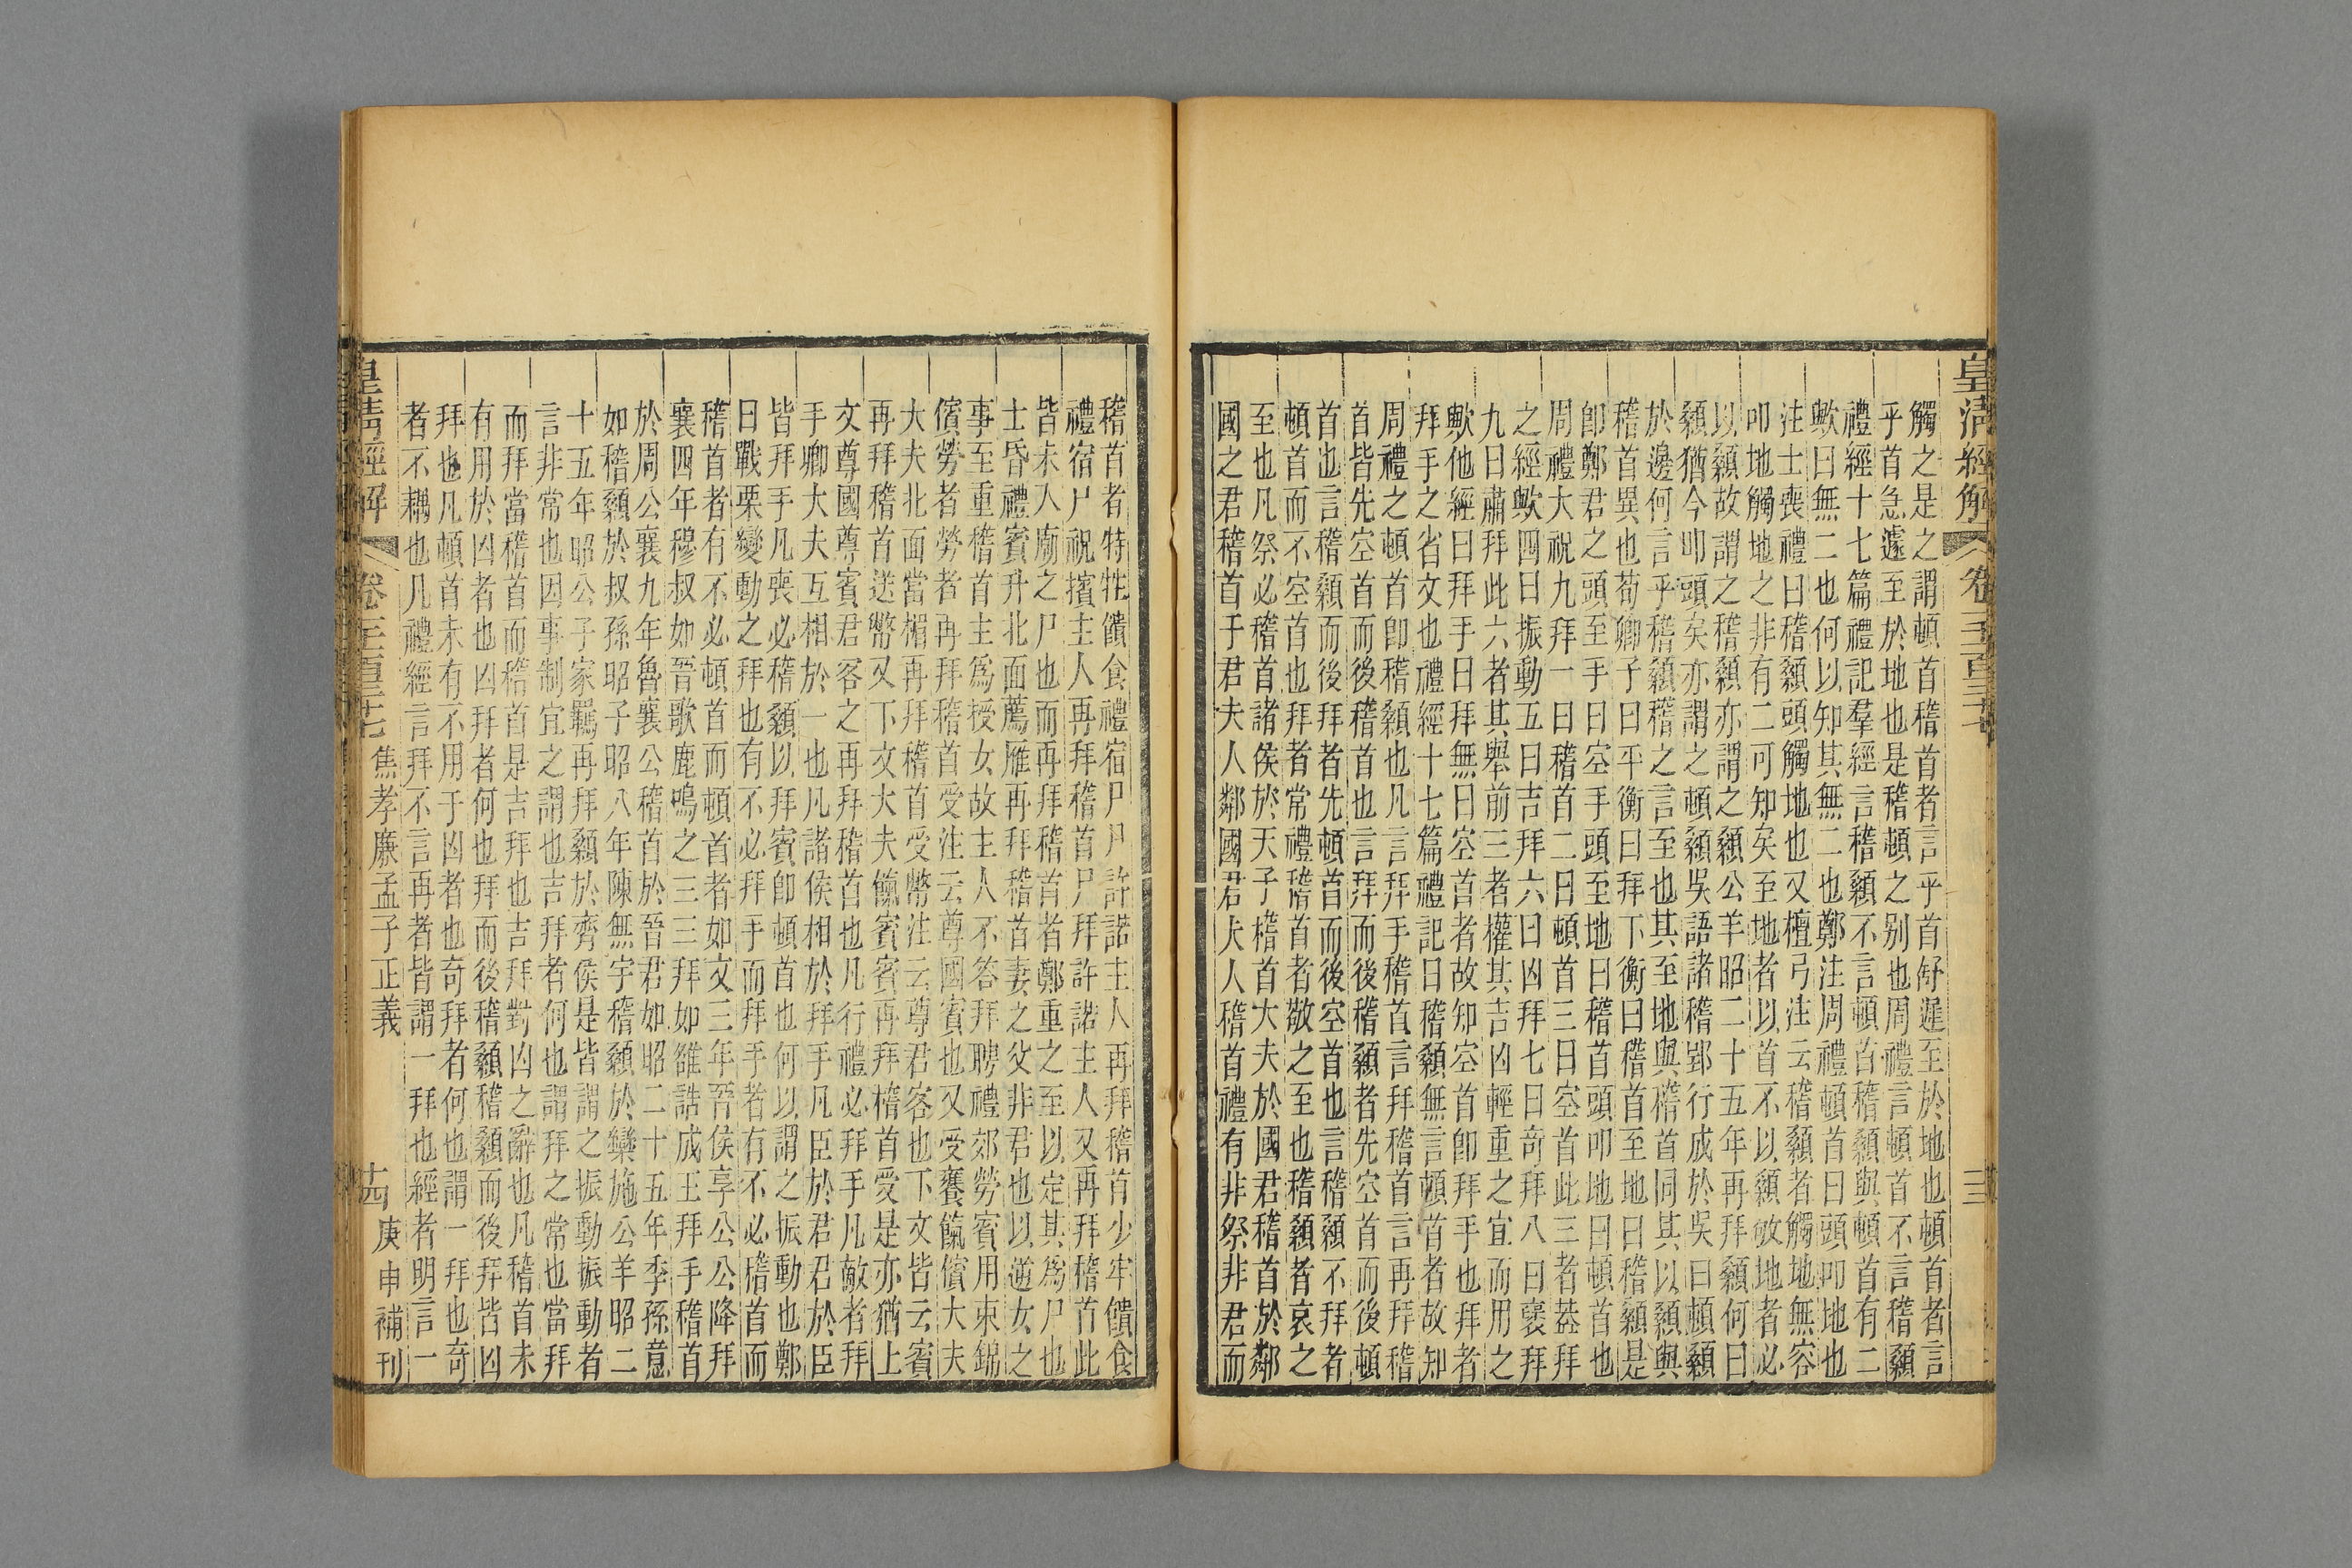 皇清經解
卷一千一百三十七
觸之是之謂頓首稽首者言乎首舒遲至於地也頓首者言
乎首急遽至於地也是稽頓之别也周禮言頓首不言稽顙
禮經十七篇禮記羣經言稽顙不言頓首稽顙與頓首有二
歟曰無二也何以知其無二也鄭注周禮頓首曰頭叩地也
注士喪禮曰稽顙頭觸地也又檀弓注云稽顙者觸地無容
叩地觸地之非有二可知矣至地者以首不以顙㪣地者必
以顙故謂之稽顙亦謂之顙公羊昭二十五年再拜顙何曰
顙猶今叩頭矣亦謂之頓顙吳語諸稽郢行成於吳曰頓顙
於邊何言乎稽顙稽之言至也其至地與稽首同其以顙與
稽首異也荀卿子曰平衡曰拜下衡曰稽首至地曰稽顙是
卽鄭君之頭至手曰空手頭至地曰稽首頭叩地曰頓首也
周禮大祝九拜一曰稽首二曰頓首三曰空首此三者葢拜
之經歟四曰振動五曰吉拜六曰凶拜七曰奇拜八曰褒拜
九曰肅拜此六者其舉前三者權其吉凶輕重之宜而用之
歟他經曰拜手曰拜無曰空首者故知空首卽拜手也拜者
拜手之省文也禮經十七篇禮記曰稽顙無言頓首者故知
周禮之頓首卽稽顙也凡言拜手稽首言拜稽首言再拜稽
首皆先空首而後稽首也言拜而後稽顙者先空首而後頓
首也言稽顙而後拜者先頓首而後空首也言稽顙不拜者
頓首而不空首也拜者常禮稽首者敬之至也稽顙者哀之
至也凡祭必稽首諸侯於天子稽首大夫於國君稽首於鄰
國之君稽首于君夫人鄰國君夫人稽首禮有非祭非君而
稽首者特牲饋食禮宿尸尸許諾主人再拜稽首少牢饋食
禮宿尸祝擯主人再拜稽首尸拜許諾主人又再拜稽首此
皆未入廟之尸也而再拜稽首者鄭重之至以定其爲尸也
士昏禮賓升北面薦雁再拜稽首妻之父非君也以逆女之
事至重稽首主爲授女故主人不答拜聘禮郊勞賓用束錦
儐勞者勞者再拜稽首受注云尊國賓也又受饔餼儐大夫
大夫北面當楣再拜稽首受幣注云尊君客也下文皆云賓
再拜稽首送幣又下文大夫餼賓賓再拜稽首受是亦猶上
文尊國尊賓君客之再拜稽首也凡行禮必拜手凡敵者拜
手卿大夫互相於一也凡諸侯相於拜手凡臣於君君於臣
皆拜手凡喪必稽顙以拜賓卽頓首也何以謂之振動也鄭
曰戰栗變動之拜也有不必拜手而拜手者有不必稽首而
稽首者有不必頓首而頓首者如文三年晉侯享公公降拜
襄四年穆叔如晉歌鹿鳴之三三拜如雒誥成王拜手稽首
於周公襄九年魯襄公稽首於晉君如昭二十五年季孫意
如稽顙於叔孫昭子昭八年陳無宇稽顙於欒施公羊昭二
十五年昭公子家羈再拜顙於齊侯是皆謂之振動振動者
言非常也因事制宜之謂也吉拜者何也謂拜之常也當拜
而拜當稽首而稽首是吉拜也吉拜對凶之辭也凡稽首未
有用於凶者也凶拜者何也拜而後稽顙稽顙而後拜皆凶
拜也凡頓首未有不用于凶者也奇拜者何也謂一拜也奇
者不耦也凡禮經言拜不言再者皆謂一拜也經者明言一
皇清經解
卷一千一百三十七 焦孝廉孟子正義
十四
庚申補刊